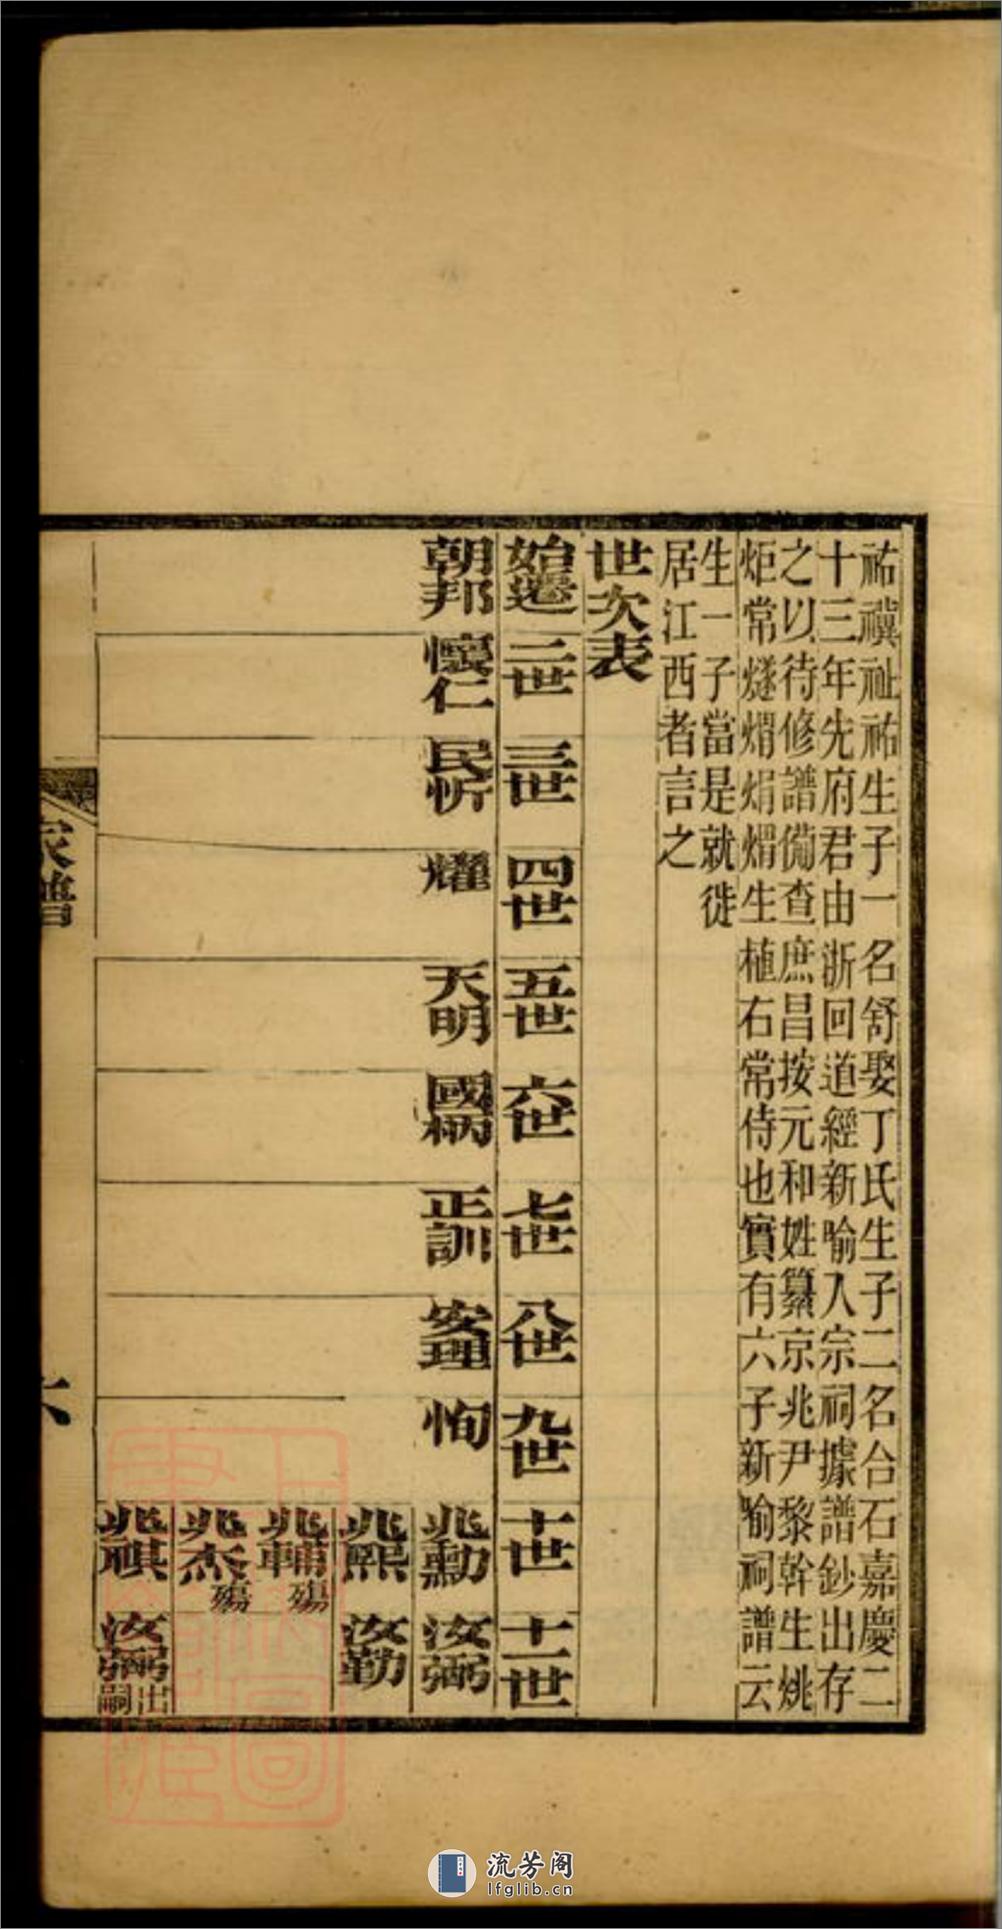 祐禩祉祐生子一名舒娶丁氏生子二名合石嘉慶二
十三年先府君由浙回道經新喻入宗祠據譜鈔出存
之以待修譜備查庶昌按元和姓纂京兆尹黎幹生姚
炬常燧煟焆煟生植右常侍也實有六子新喻祠譜云
生一子當是就徙
居江西者言之
世次表
始遷 二世 三世 四世 五世 六世 七世 八世 九世 十世 十一世
朝邦 懷仁 民忻 耀 天明 國柄 正訓 安理 恂 兆勳 汝弼
兆熙 汝勤
兆輔殤
兆杰殤
兆祺 汝弼出嗣
家譜
六
流芳阁
lfglib.cn